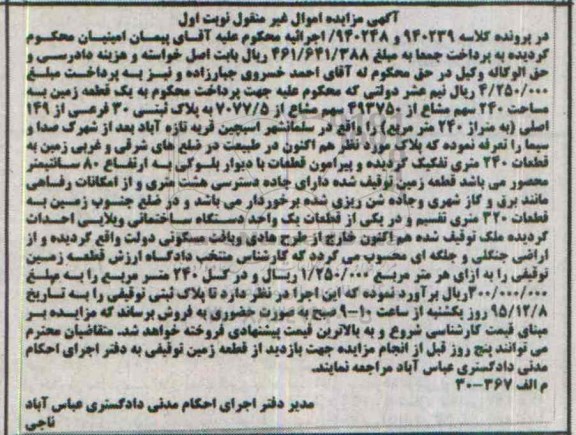 آگهی مزایده اموال غیر منقول نوبت اول
در پرونده کلاسه ۹۴۰۲۳۹ و ۹۴۰۲۴۸/ اجرائیه محکوم علیه آقای پیمان امینیان محکوم
گردیده به پرداخت جمعا به مبلغ ۴۶۱/۶۴۱/۳۸۸ ریال بابت اصل خواسته و هزینه دادرسی و
حق الوکاله وکیل در حق محکوم له آقای احمد خسروی جبارزاده و نیز به پرداخت مبلغ
۴/۲۵۰/۰۰۰ ریال نیم عشر دولتی که محکوم علیه جهت پرداخت محکوم به یک قطعه زمین به
مساحت ۲۴۰ سهم مشاع از ۴۹۳۷۵۰ سهم مشاع از ۷۰۷۷/۵ به پلاک ثبتی ۳۰ فرعی از ۱۴۹
اصلی (به متراژ ۲۴۰ متر مربع) را واقع در سلمانشهر اسبچین قریه تازه آباد بعد از شهرک صدا و
سیما را تعرفه نموده که پلاک مورد نظر هم اکنون در طبیعت در ضلع های شرقی و غربی زمین به
قطعات ۲۴۰ متری تفکیک گردیده و پیرامون قطعات با دیوار بلوکی به ارتفاع ۸۰ سانتیمتر
محصور می باشد قطعه زمین توقیف شده دارای جاده دسترسی هشت متری و از امکانات رفاهی
مانند برق و گاز شهری وجاده شن ریزی شده برخوردار می باشد و در ضلع جنوب زمین به
قطعات ۳۲۰ متری تقسیم و در یکی از قطعات یک واحد دستگاه ساختمانی ویلایی احداث
گردیده ملک توقیف شده هم اکنون خارج از طرح هادی وبافت مسکونی دولت واقع گردیده و از
اراضی جنگلی و جلگه ای محسوب می گردد که کارشناس منتخب دادگاه ارزش قطعه زمین
توقیفی را به ازای هر متر مربع ۱/۲۵۰/۰۰۰ ریال و در کل ۲۴۰ متر مربع را به مبلغ
۳۰۰/۰۰۰/۰۰۰ریال برآورد نموده که این اجرا در نظر دارد تا پلاک ثبتی توقیفی را به تاریخ
۹۵/۱۲/۸ روز یکشنبه از ساعت ۱۰-۹ صبح به صورت حضوری به فروش برساند که مزایده بر
مبنای قیمت کارشناسی شروع و به بالاترین قیمت پیشنهادی فروخته خواهد شد. متقاضیان محترم
می توانند پنج روز قبل از انجام مزایده جهت بازدید از قطعه زمین توقیفی به دفتر اجرای احکام
مدنی دادگستری عباس آباد مراجعه نمایند.
م الف ۳۶۷-۳۰
مدیر دفتر اجرای احکام مدنی دادگستری عباس آباد
ناجی